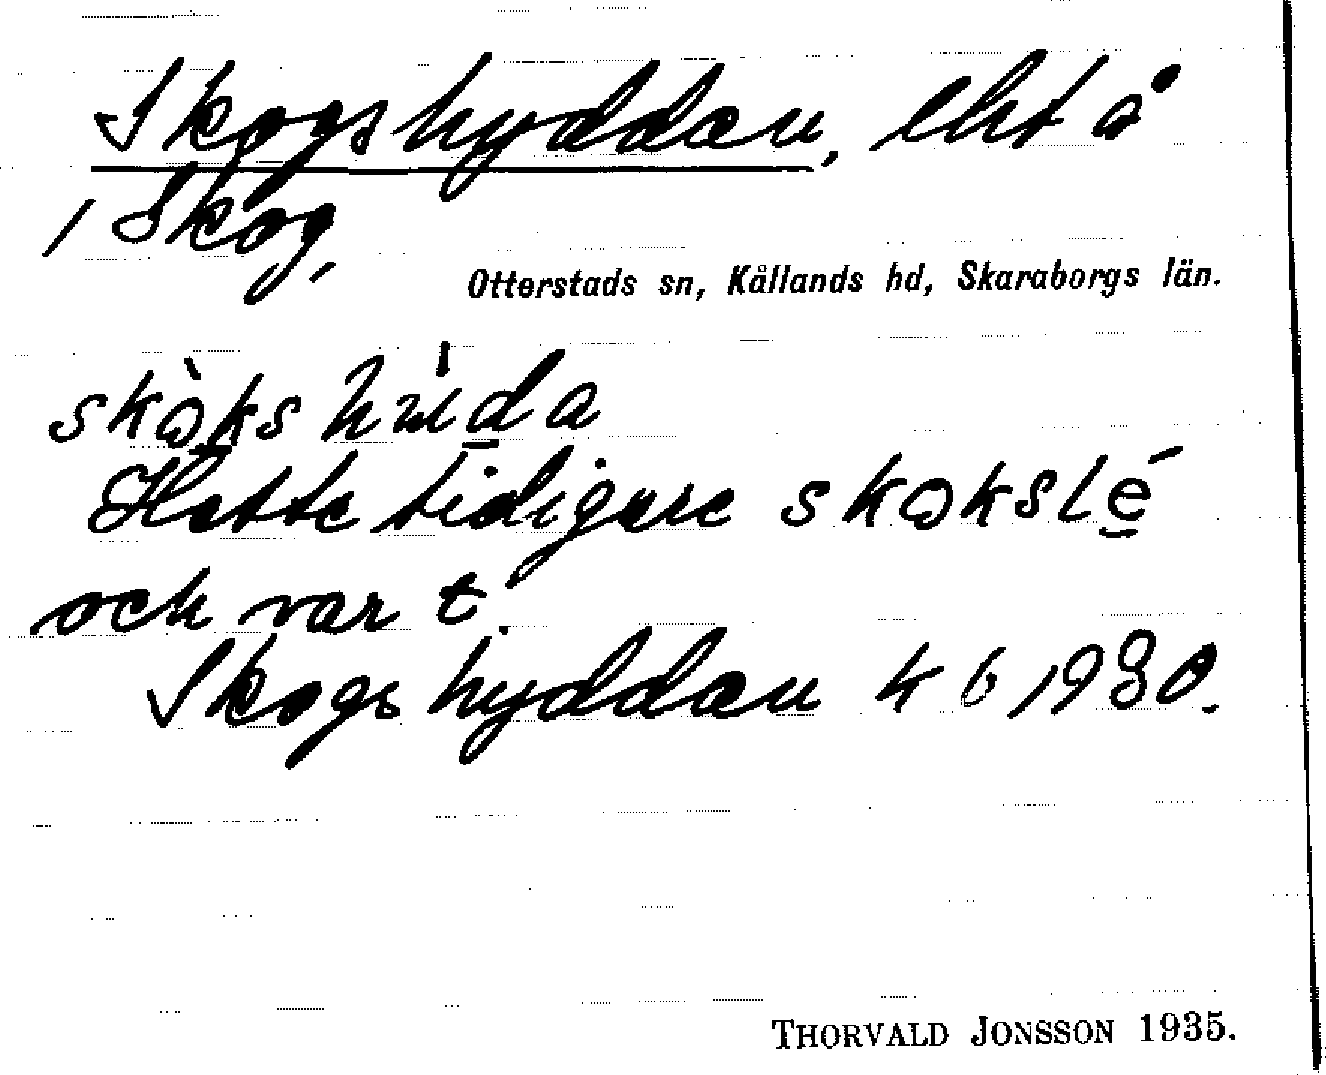 Skogshyddan, lht å
1 Skog,
Otterstads sn, Kållands hd, Skaraborgs län.
skɷ̀ks hùda
Hette tidigare skɷkslé
och var t.
Skogshyddan 4 6 1930.
THORVALD JONSSON 1935.